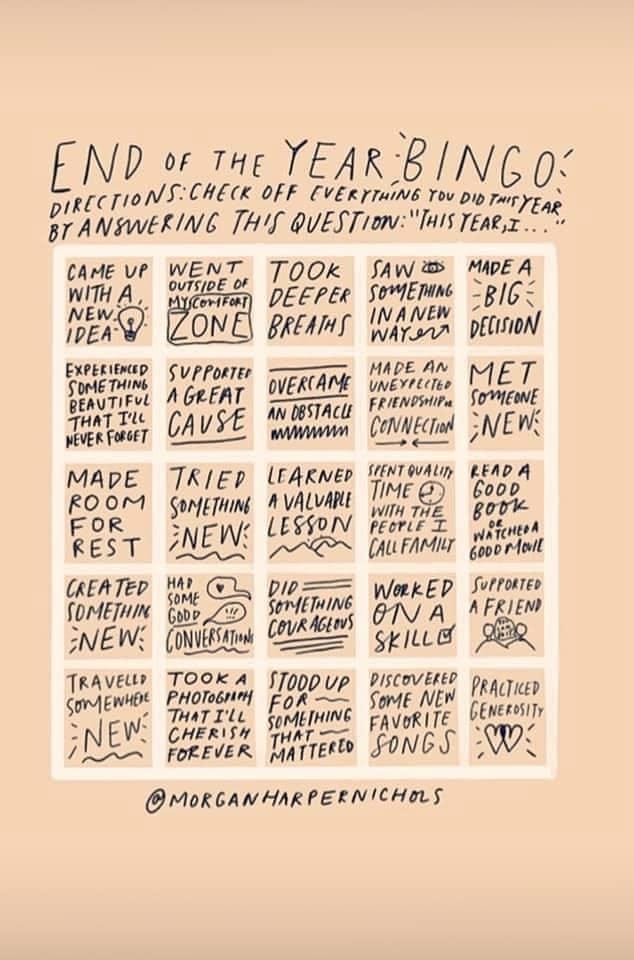 END OF THE YEAR BINGO
DIRECTIONS: CHECK OFF EVERYTHING YOU DID THIS YEAR
BY ANSWERING THIS QUESTION: "THIS YEAR, I..."
CAME UP
WITH A
NEW
IDEA
WENT
OUTSIDE OF
MY COMFORT
ZONE
TOOK
DEEPER
BREATHS
SAW
SOMETHING
IN A NEW
WAY
MADE A
BIG
DECISION
EXPERIENCED
SOMETHING
BEAUTIFUL
THAT I'LL
NEVER FORGET
SUPPORTED
A GREAT
CAUSE
OVERCAME
AN OBSTACLE
MADE AN
UNEXPECTED
FRIENDSHIP or
CONNECTION
MET
SOMEONE
NEW
MADE
ROOM
FOR
REST
TRIED
SOMETHING
NEW
LEARNED
A VALUABLE
LESSON
SPENT QUALITY
TIME
WITH THE
PEOPLE I
CALL FAMILY
READ A
GOOD
BOOK
OR
WATCHED A
GOOD MOVIE
CREATED
SOMETHIN
NEW
HAD
SOME
GOOD
CONVERSATIONS
DID
SOMETHING
COURAGEOUS
WORKED
ON A
SKILL
SUPPORTED
A FRIEND
TRAVELLD
SOMEWHERE
NEW
TOOK A
PHOTOGRAPH
THAT I'LL
CHERISH
FOREVER
STOOD UP
FOR
SOMETHING
THAT
MATTERED
DISCOVERED
SOME NEW
FAVORITE
SONGS
PRACTICED
GENEROSITY
@MORGANHARPERNICHOLS